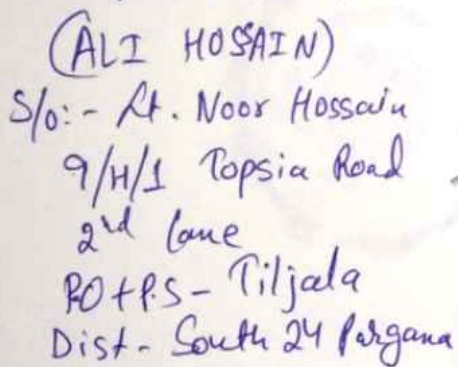 (ALI HOSSAIN)
S/o:- Lt. Noor Hossain
9/H/1 Topsia Road
2nd lane
P.O + P.S - Tiljala
Dist - South 24 Pargana